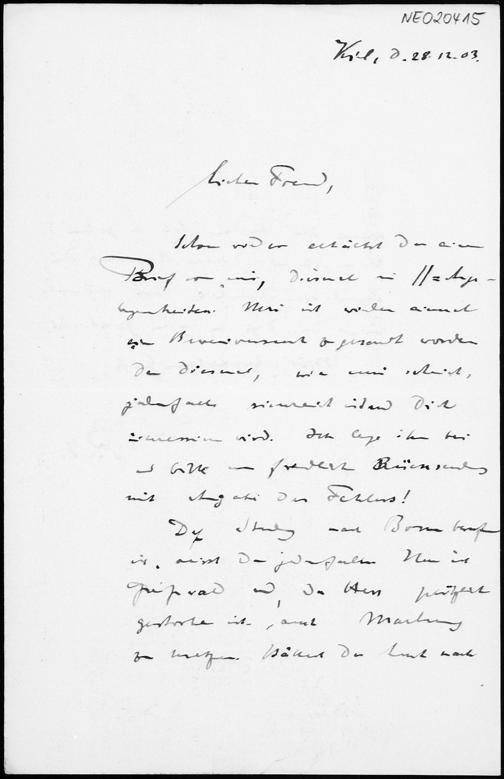 NEO20415
Kiel, d. 28.12.03.
Lieber Freund,
Schon wieder erhältst Du einen
Brief von mir, diesmal in //=Ange-
legenheiten. Mir ist wieder einmal
ein Beweisversuch zugesandt worden
der diesmal, wie mir scheint,
jedenfalls sinnreich ist und Dich
interessieren wird. Ich lege ihn bei
und bitte um freundliche Rücksendung
mit Angabe des Fehlers!
Daß Study nach Bonn berufen
ist, weißt Du jedenfalls. Nun ist
Greifswald und, da Hess plötzlich
gestorben ist, auch Marburg
zu besetzen. Hättest Du Lust nach